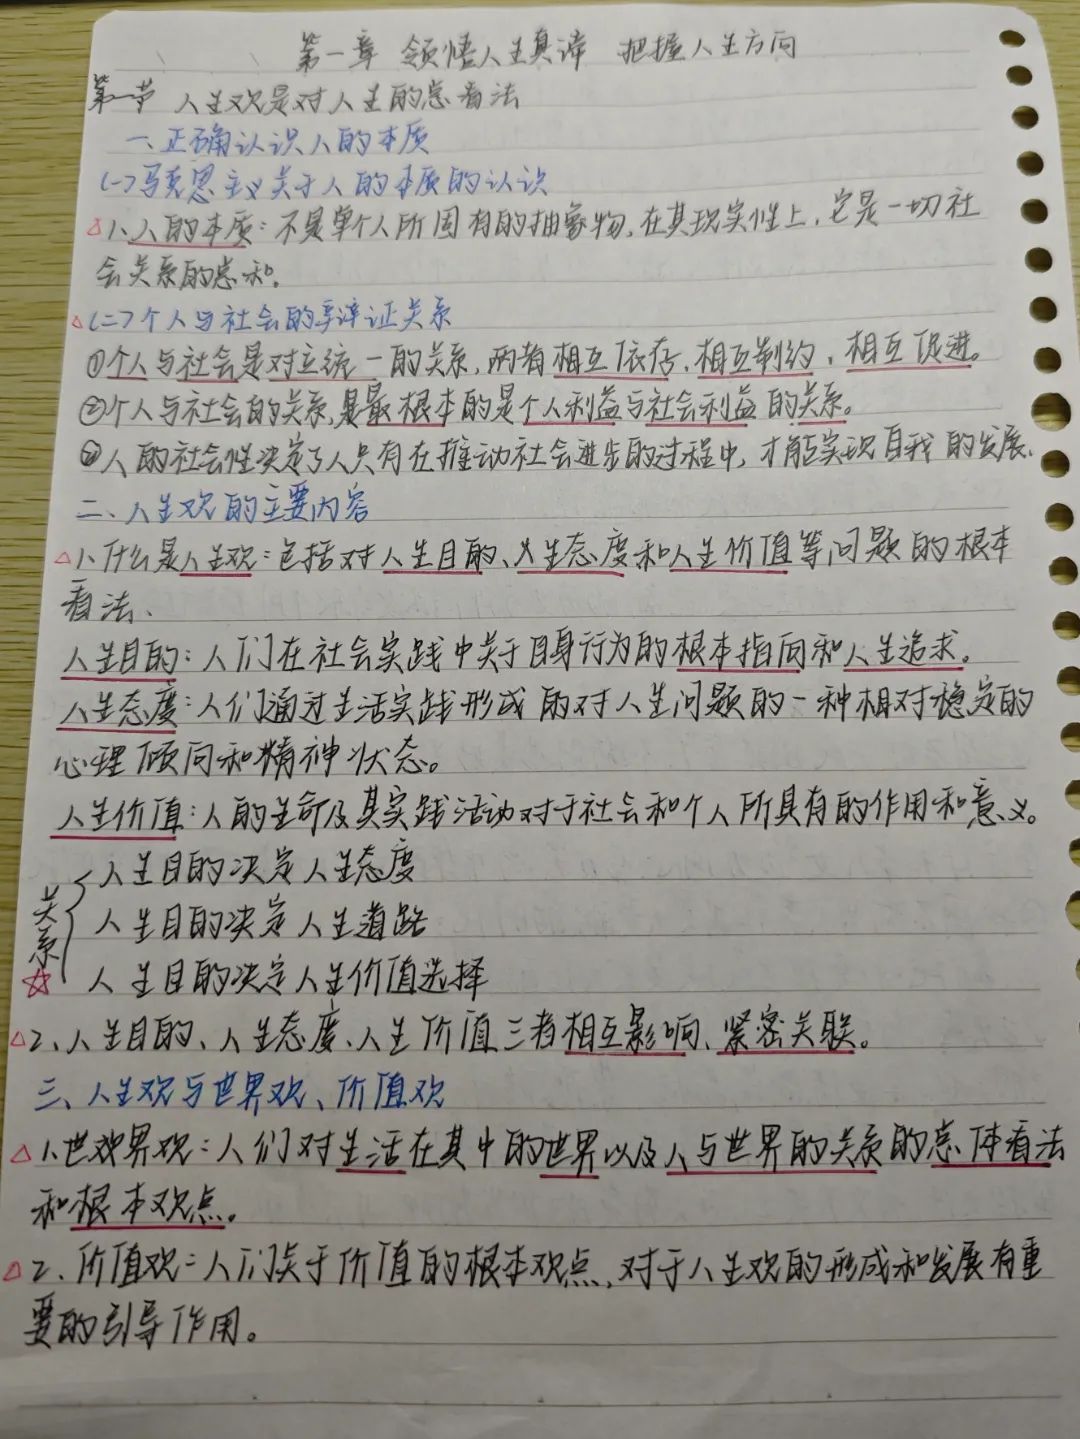 第一章 领悟人生真谛 把握人生方向
第一节 人生观是对人生的总看法
一、正确认识人的本质
(一)马克思主义关于人的本质的认识
△1、人的本质:不是单个人所固有的抽象物,在其现实性上,它是一切社
会关系的总和。
△(二)个人与社会的辩证关系
①个人与社会是对立统一的关系,两者相互依存、相互制约、相互促进。
②个人与社会的关系,是最根本的是个人利益与社会利益的关系。
③人的社会性决定了人只有在推动社会进步的过程中,才能实现自我的发展、
二、人生观的主要内容
△1、什么是人生观:包括对人生目的、人生态度和人生价值等问题的根本
看法、
人生目的:人们在社会实践中关于自身行为的根本指向和人生追求。
人生态度:人们通过生活实践形成的对人生问题的一种相对稳定的
心理倾向和精神状态。
人生价值:人的生命及其实践活动对于社会和个人所具有的作用和意义。
人生目的决定人生态度
关系 人生目的决定人生道路
☆ 人生目的决定人生价值选择
△2、人生目的、人生态度、人生价值三者相互影响、紧密关联。
三、人生观与世界观、价值观
△1、世界观:人们对生活在其中的世界以及人与世界的关系的总体看法
和根本观点。
△2、价值观:人们关于价值的根本观点,对于人生观的形成和发展有重
要的引导作用。